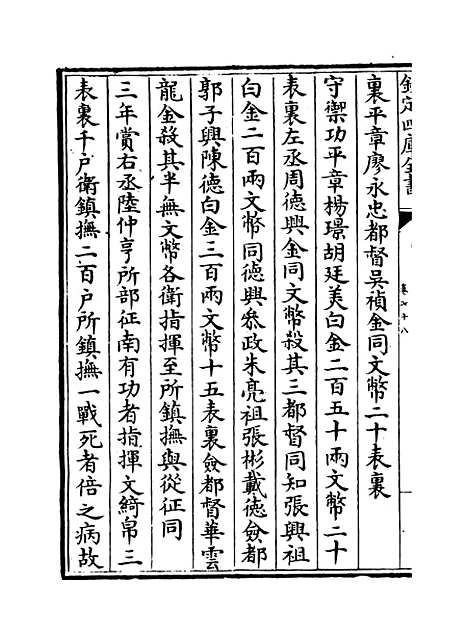 欽定四庫全書
卷七十八
裏平章廖永忠都督吳禎金同文幣二十表裏
守禦功平章楊璟胡廷美白金二百五十兩文幣二十
表裏左丞周德興金同文幣殺其三都督同知張興祖
白金二百兩文幣同德興叅政朱亮祖張彬戴德僉都
郭子興陳德白金三百兩文幣十五表裏僉都督華雲
龍金殺其半無文幣各衛指揮至所鎮撫與從征同
三年賞右丞陸仲亨所部征南有功者指揮文綺帛三
表裏千户衛鎮撫二百户所鎮撫一戰死者倍之病故